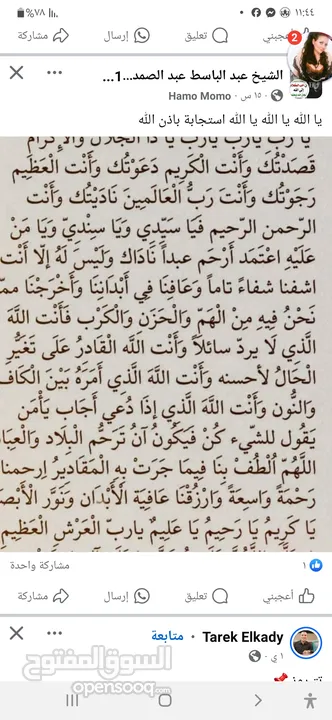 ١١:٤٤
٧٨%
أعجبني
تعليق
إرسال
مشاركة
2
الشيخ عبد الباسط عبد الصمد...1...
Hamo Momo · ١٥ س
يا الله يا الله يا الله استجابة باذن الله
يا رب يارب يارب يا ذا الجلال والإكرام
قَصَدْتُكَ وَأَنْتَ الْكَرِيم دَعَوْتُك وَأَنْتَ الْعَظِيم
رجَوْتُكَ وَأَنْتَ رَبُّ الْعَالَمِينَ نَادَيْتُكَ وَأَنْتَ
الرَّحمن الرَّحيم فَيَا سيّدِي وَيَا سِنْدِيّ وَيَا مَنْ
عَلَيْهِ اعْتَمَد أرْحَم عبداً نَاداكَ وَلَيْسَ لَهُ إلّا أَنْت
اشفنا شفاءً تاماً وَعَافِنَا فِي أَبْدَانِنَا وَأَخْرَجْنَا ممّ
نَحْنُ فِيهِ مِنْ الْهَمّ وَالْحَزَن وَالْكَرْب فَأَنْت اللَّهَ
الَّذِي لَا يردّ سائلاً وَأَنْتَ اللَّه القَادرُ عَلَى تَغَيُّر
الْحَالُ لأحسنه وَأَنْت اللَّهَ الَّذِي أمرَهُ بَيْنَ الْكَاف
وَالنُّون وَأَنْت اللَّهَ الَّذِي إذَا دُعي أجَاب يَأْمَن
يَقُول للشّيء كُنْ فَيَكُونُ أَنْ تَرْحَم الْبِلَاد وَالْعِبَا
اللَّهُمّ الْطُفْ بِنَا فِيمَا جَرَتْ بِهِ الْمَقَادِيرُ ارحمنا
رَحْمَةً وَاسِعَةً وَارْزُقْنَا عَافِيَة الْأَبْدَان وَنَوَّر الْأَبْصَ
يَا كَرِيمُ يَا رحِيمُ يَا عَلِيمُ ياربّ الْعَرْشِ الْعَظِيم
١
مشاركة واحدة
أعجبني
تعليق
إرسال
مشاركة
Tarek Elkady · متابعة
١ ي
السوق المفتوح
opensooq.com